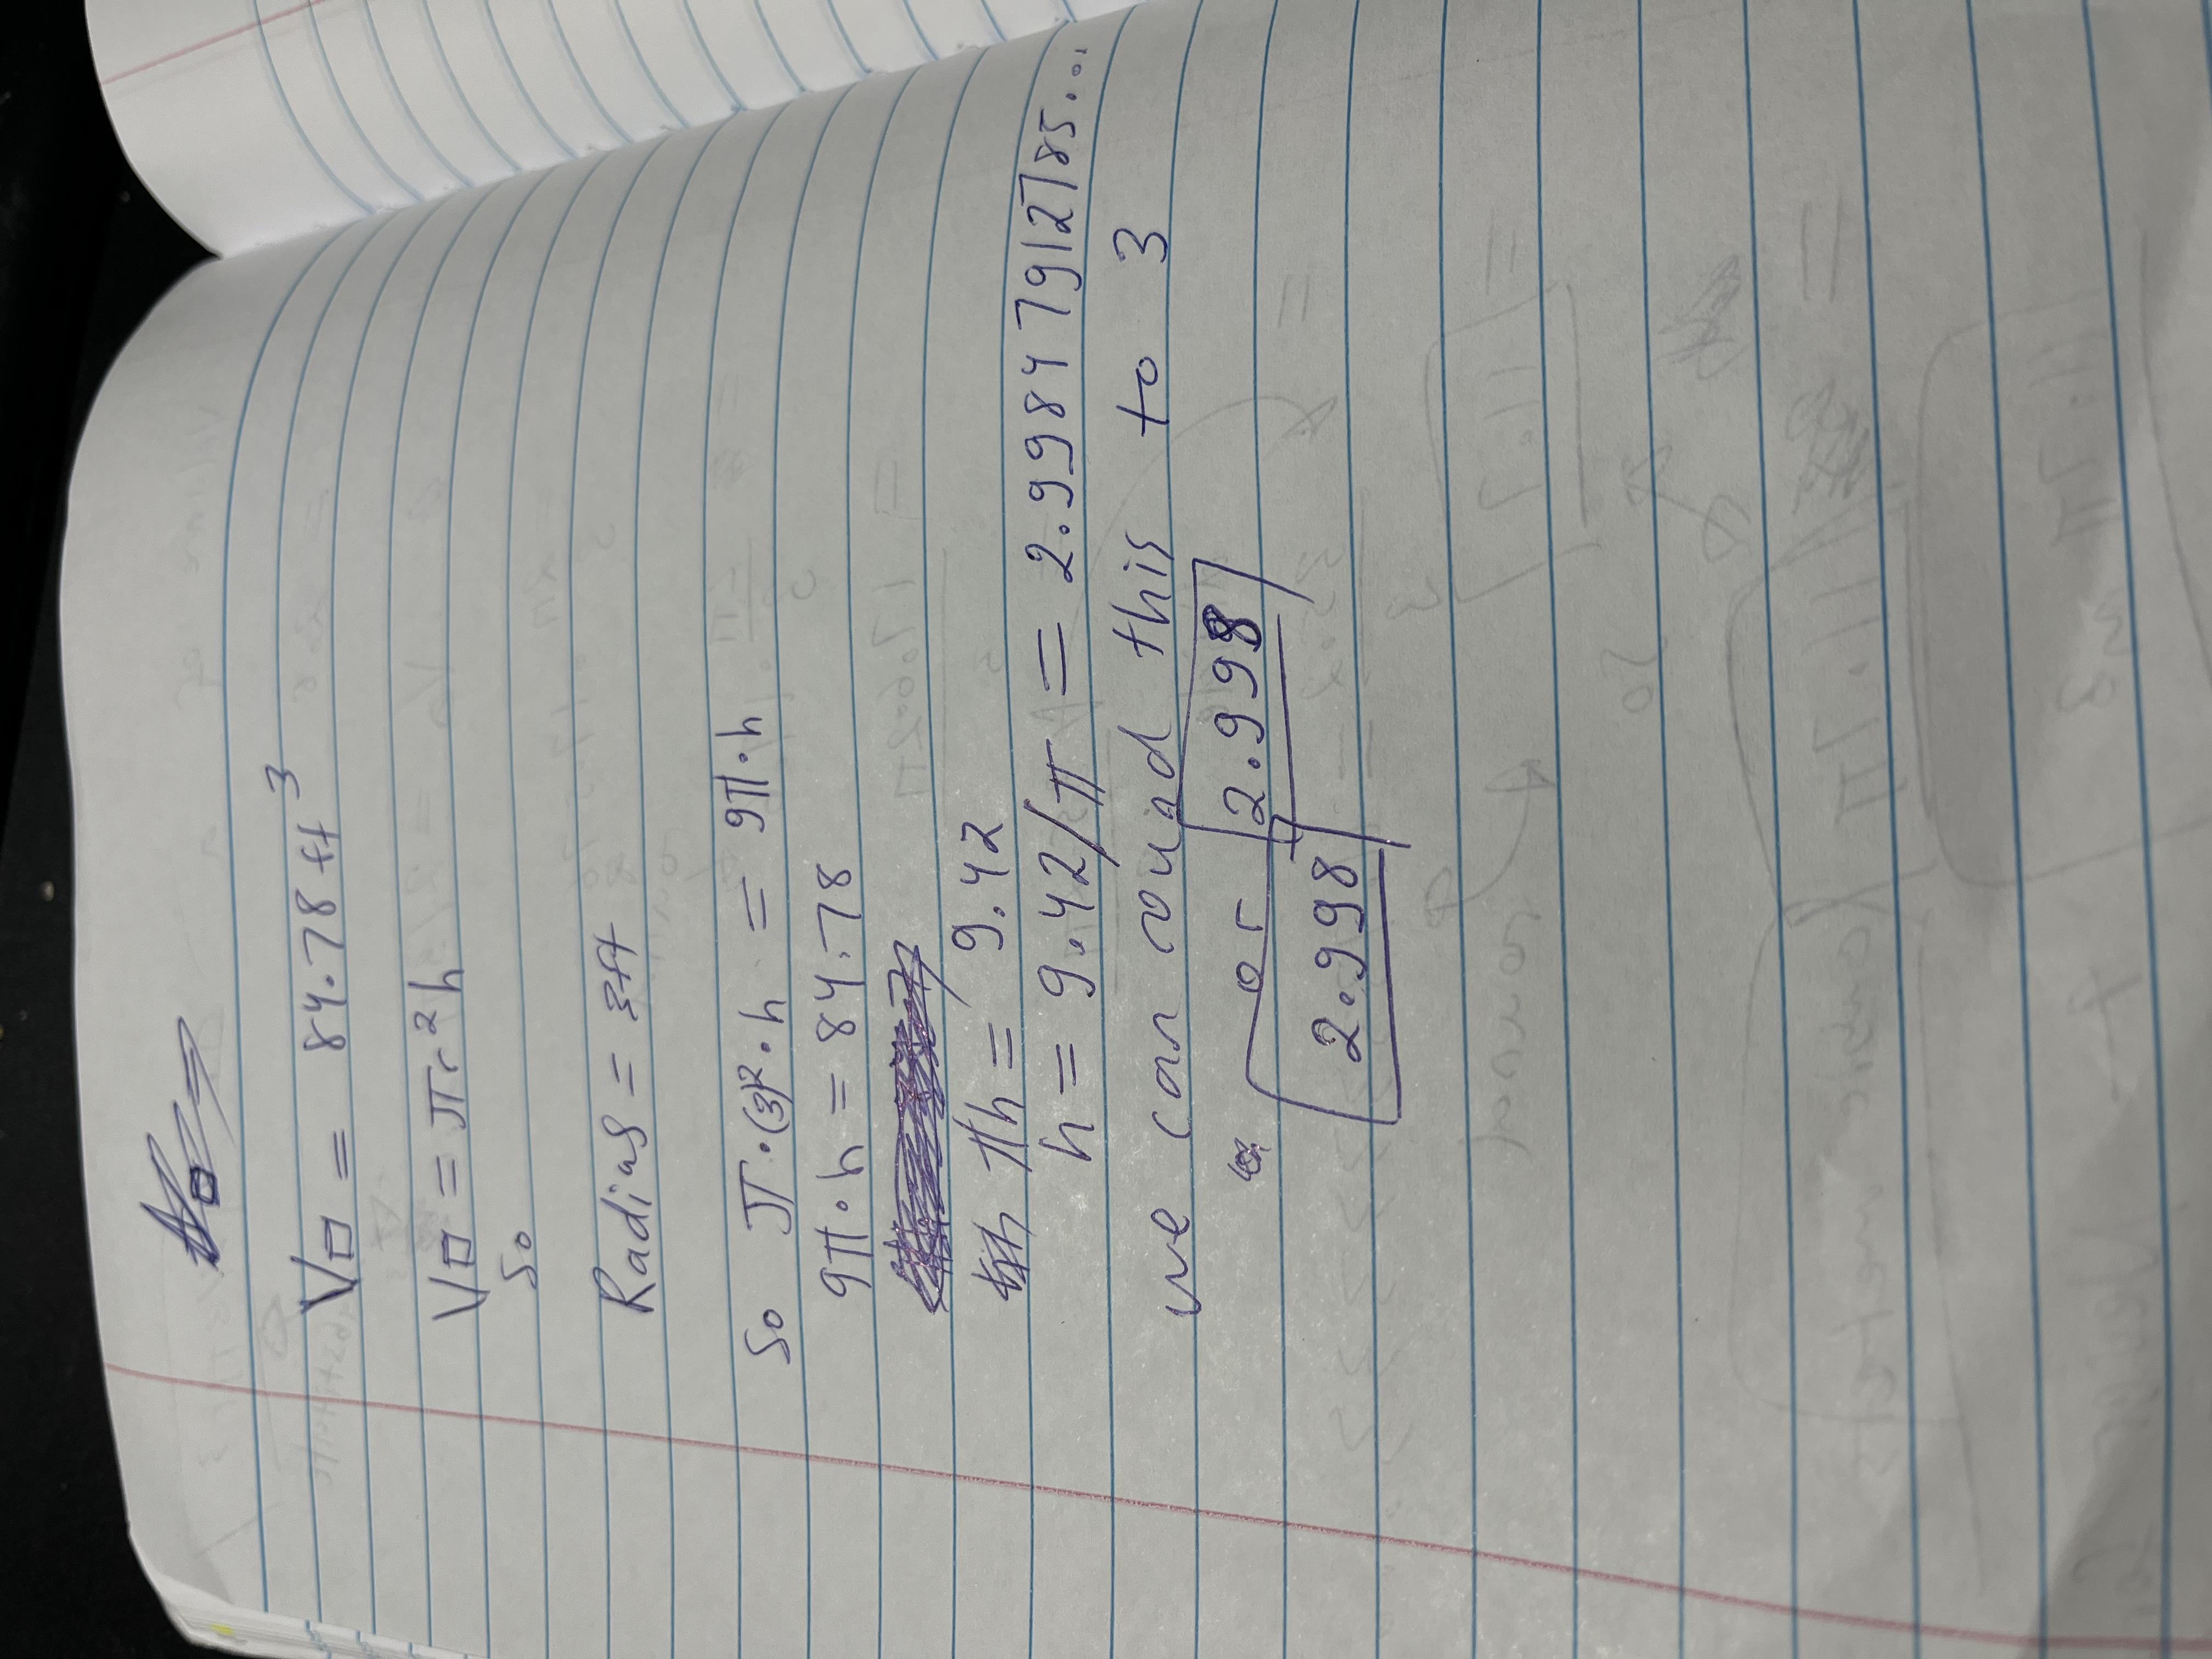 V□ = 84.78 ft³
V□ = πr²h
so
Radius = 3ft
So π·(3)²·h = 9π·h
9π·h = 84.78
πh = 9.42
h = 9.42/π = 2.998479912785....
we can round this to 3
or 2.998
2.998